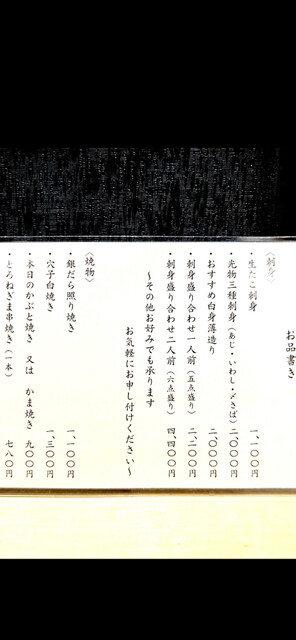 お品書き
〈刺身〉
・生たこ刺身 一、一〇〇円
・光物三種刺身(あじ・いわし・〆さば)二、〇〇〇円
・おすすめ白身薄造り 二、〇〇〇円
・刺身盛り合わせ一人前(五点盛り) 二、二〇〇円
・刺身盛り合わせ二人前(六点盛り) 四、四〇〇円
〜その他お好みでも承ります
お気軽にお申し付けください〜
〈焼物〉
・銀だら照り焼き 一、一〇〇円
・穴子白焼き 一、三〇〇円
・本日のかぶと焼き 又は かま焼き 九〇〇円
・とろねぎま串焼き(一本) 七八〇円